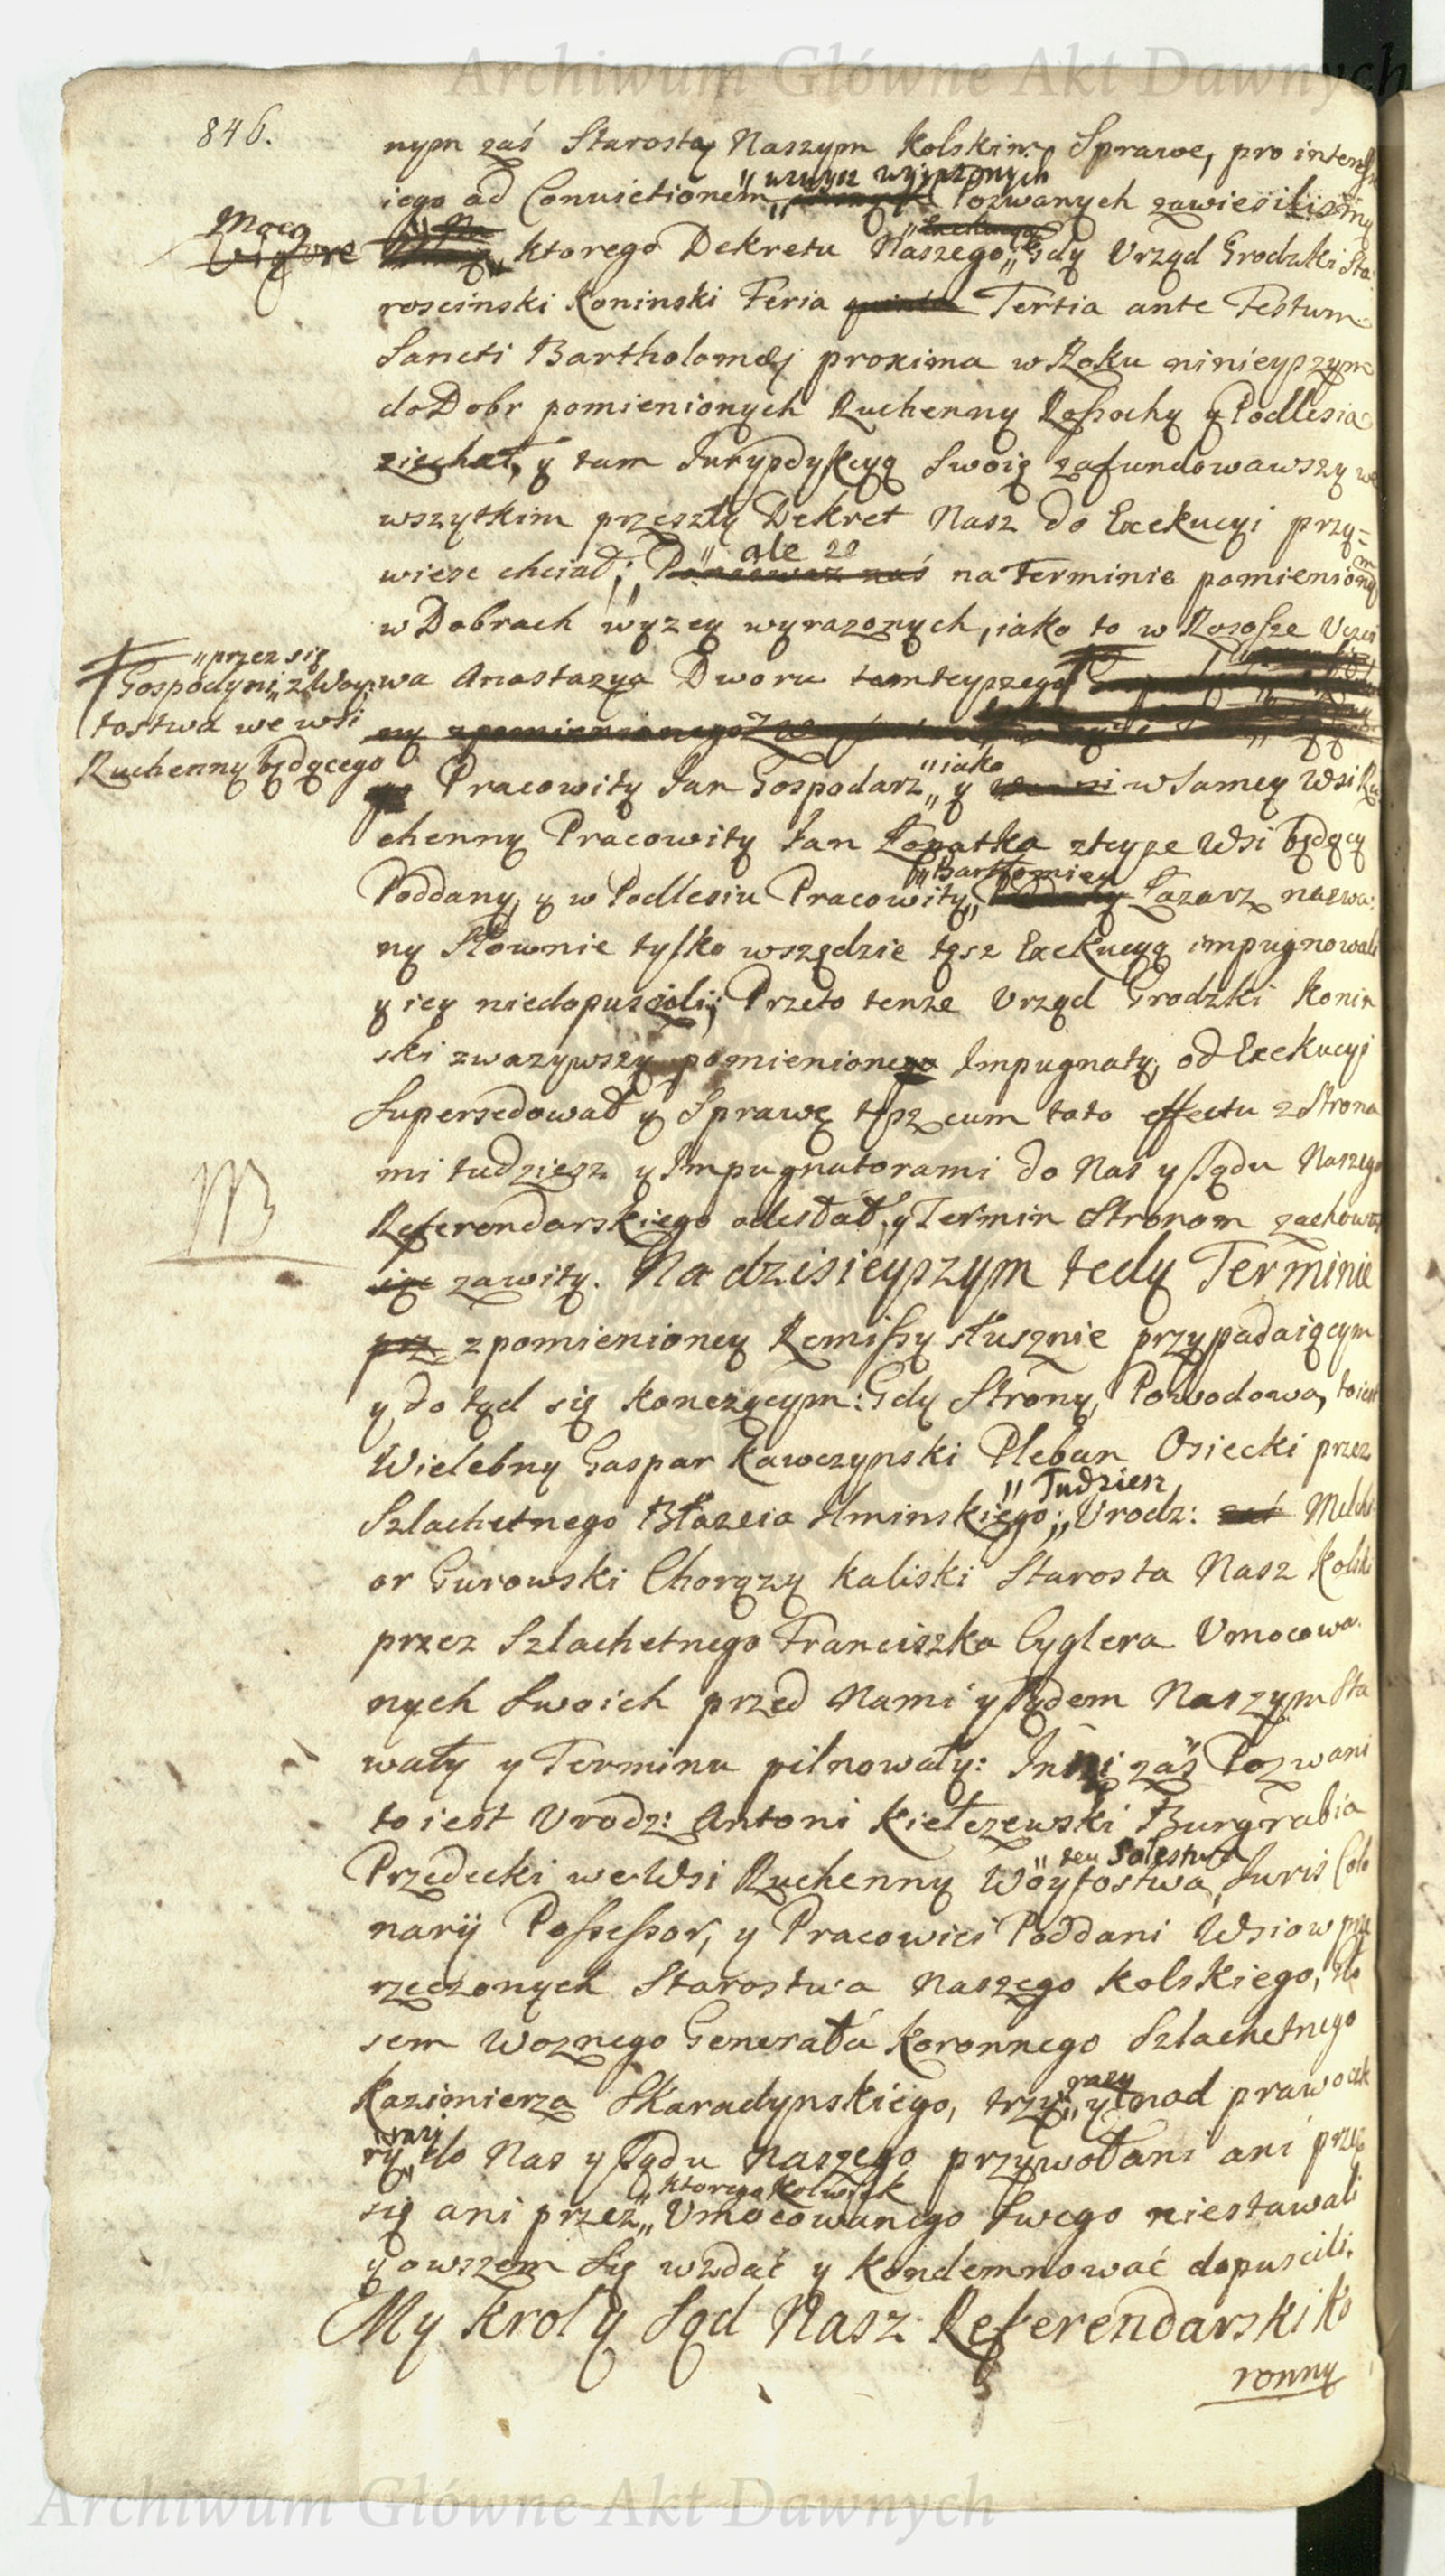 Archiwum Główne Akt Dawnych
846.
nym zaś Starostą Naszym Kolskim Sprawę, pro interesse
„ wzwyż wyrażonych
iego ad Convictionem „ Pozwanych zawiesilismy
Mocą
Vigore
ktorego Dekretu Naszego „ Gdy Urząd Grodzki Sta:
roscinski Koninski Feria quinta Tertia ante Festum
Sancti Bartholomæj proxima w Roku ninieyszym
do Dobr pomienionych Ruchenny Rossochy y Podlesia
ziechał, y tam Jurysdykcyą Swoię zafundowawszy we
wszytkim przeszły Dekret Nasz do Exekucyi przy=
„ ale że
wiesc chciał; Ponieważ zaś na Terminie pomieniony
m
w Dobrach wyzey wyrazonych, iako to w Rososze Uczci
wa Anastazya Dworu tamteyszego
„ przez się
Gospodyni, z Woy:
tostwa we wsi
Ruchenny będącego
ny zpomienionego
Pracowity Jan Gospodarz „ y w Samey Wsi Ru
„ iako
chenny Pracowity Jan Łopatka zteyze Wsi będący
„ Bartłomiey
Poddany, y w Podlesiu Pracowity „ Łazarz nazwa:
ny Słownie tylko wszędzie tęsz Exekucyą impugnowali
y iey niedopuscili; Przeto tenze Urząd Grodzki Konin
ski zwazywszy pomienione Impugnaty, od Exekucyi
Supersedował y Sprawę tęsz cum toto effectu z Strona
mi tudziesz y Impugnatorami do Nas y Sądu Naszego
Referendarskiego odesłał, y Termin Stronom zachował
zawity. Na dzisieyszym tedy Terminie
prz z pomienioney Remissy słusznie przypadaiącym
y do tąd się konczącym: Gdy Strony, Powodowa, to iest
Wielebny Gaspar Kawczynski Pleban Osiecki przez
„ Tudziesz
Szlachetnego Błazeia Uminskiego; „ Urodz: zaś Melchi
or Gurowski Chorązy Kaliski Starosta Nasz Kolski
przez Szlachetnego Franciszka Cyglera Umocowa:
nych Swoich przed Nami y Sądem Naszym Sta
wały y Terminu pilnowały: Inni zaś Pozwani
to iest Urodz: Antoni Kiełczewski Burgrabia
„ seu Solestwa
Przedecki we Wsi Ruchenny Woytostwa, Juris Colo
narij Possessor, y Pracowici Poddani Wsiow prze
rzeczonych Starostwa Naszego Kolskiego, Gło
sem Woznego Generała Koronnego Szlachetnego
razy
Kazimierza Skaradynskiego, trzy „ y nad prawo czte
razy
ry „ do Nas y Sądu Naszego przywołani ani przez
„ ktoregokolwiek
się ani przez „ Umocowanego Swego niestawali
y owszem Się wzdać y kondemnować dopuscili.
My Krol y Sąd Nasz Referendarski Ko
ronny
Archiwum Główne Akt Dawnych